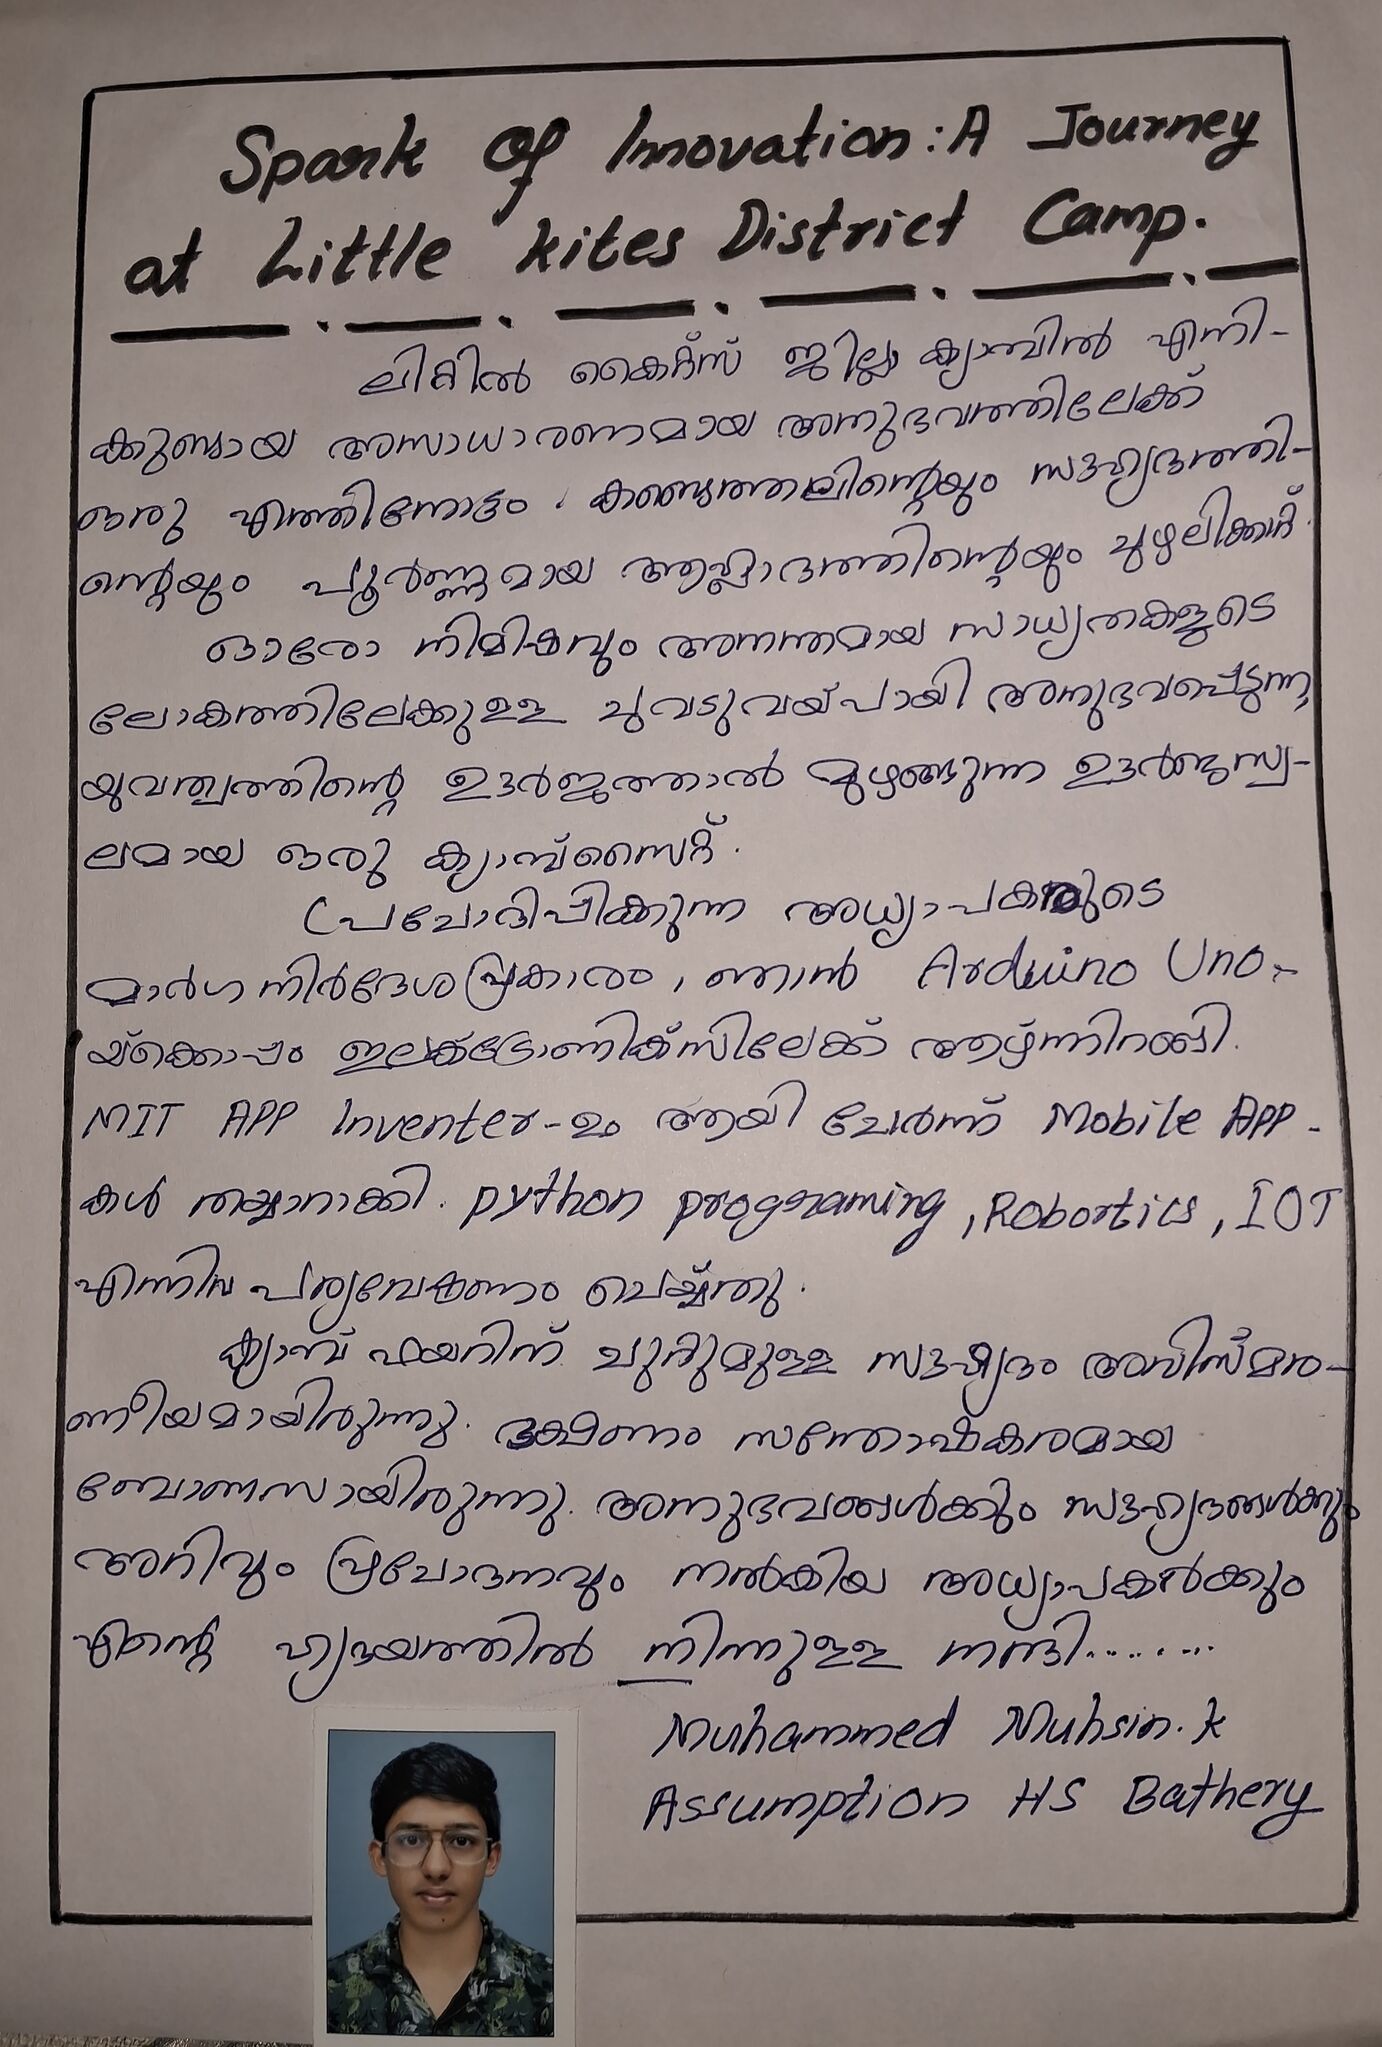 Spark Of Innovation: A Journey
at Little kites District Camp.
ലിറ്റിൽ കൈറ്റ്സ് ജില്ലാ ക്യാമ്പിൽ എനി-
ക്കുണ്ടായ അസാധാരണമായ അനുഭവത്തിലേക്ക്
ഒരു എത്തിനോട്ടം. കണ്ടെത്തലിന്റെയും സൗഹൃദത്തി-
ന്റെയും പൂർണ്ണമായ ആഹ്ലാദത്തിന്റെയും ചുഴലിക്കാറ്റ്.
ഓരോ നിമിഷവും അനന്തമായ സാധ്യതകളുടെ
ലോകത്തിലേക്കുള്ള ചുവടുവയ്പായി അനുഭവപ്പെടുന്ന,
യുവത്വത്തിന്റെ ഊർജത്താൽ മുഴങ്ങുന്ന ഊർജ്ജസ്വ-
ലമായ ഒരു ക്യാമ്പ്സൈറ്റ്.
പ്രചോദിപ്പിക്കുന്ന അധ്യാപകരുടെ
മാർഗനിർദേശപ്രകാരം, ഞാൻ Arduino Uno-
യ്ക്കൊപ്പം ഇലക്ട്രോണിക്സിലേക്ക് ആഴ്ന്നിറങ്ങി.
MIT APP Inventer-ഉം ആയി ചേർന്ന് Mobile APP-
കൾ തയ്യാറാക്കി. python programing, Robortics, IOT
എന്നിവ പര്യവേഷണം ചെയ്തു.
ക്യാമ്പ് ഫയറിന് ചുറ്റുമുള്ള സൗഹൃദം അവിസ്മര-
ണീയമായിരുന്നു. ഭക്ഷണം സന്തോഷകരമായ
ബോണസായിരുന്നു. അനുഭവങ്ങൾക്കും സൗഹൃദങ്ങൾക്കും
അറിവും പ്രചോദനവും നൽകിയ അധ്യാപകർക്കും
എന്റെ ഹൃദയത്തിൽ നിന്നുള്ള നന്ദി........
Muhammed Muhsin.k
Assumption HS Bathery